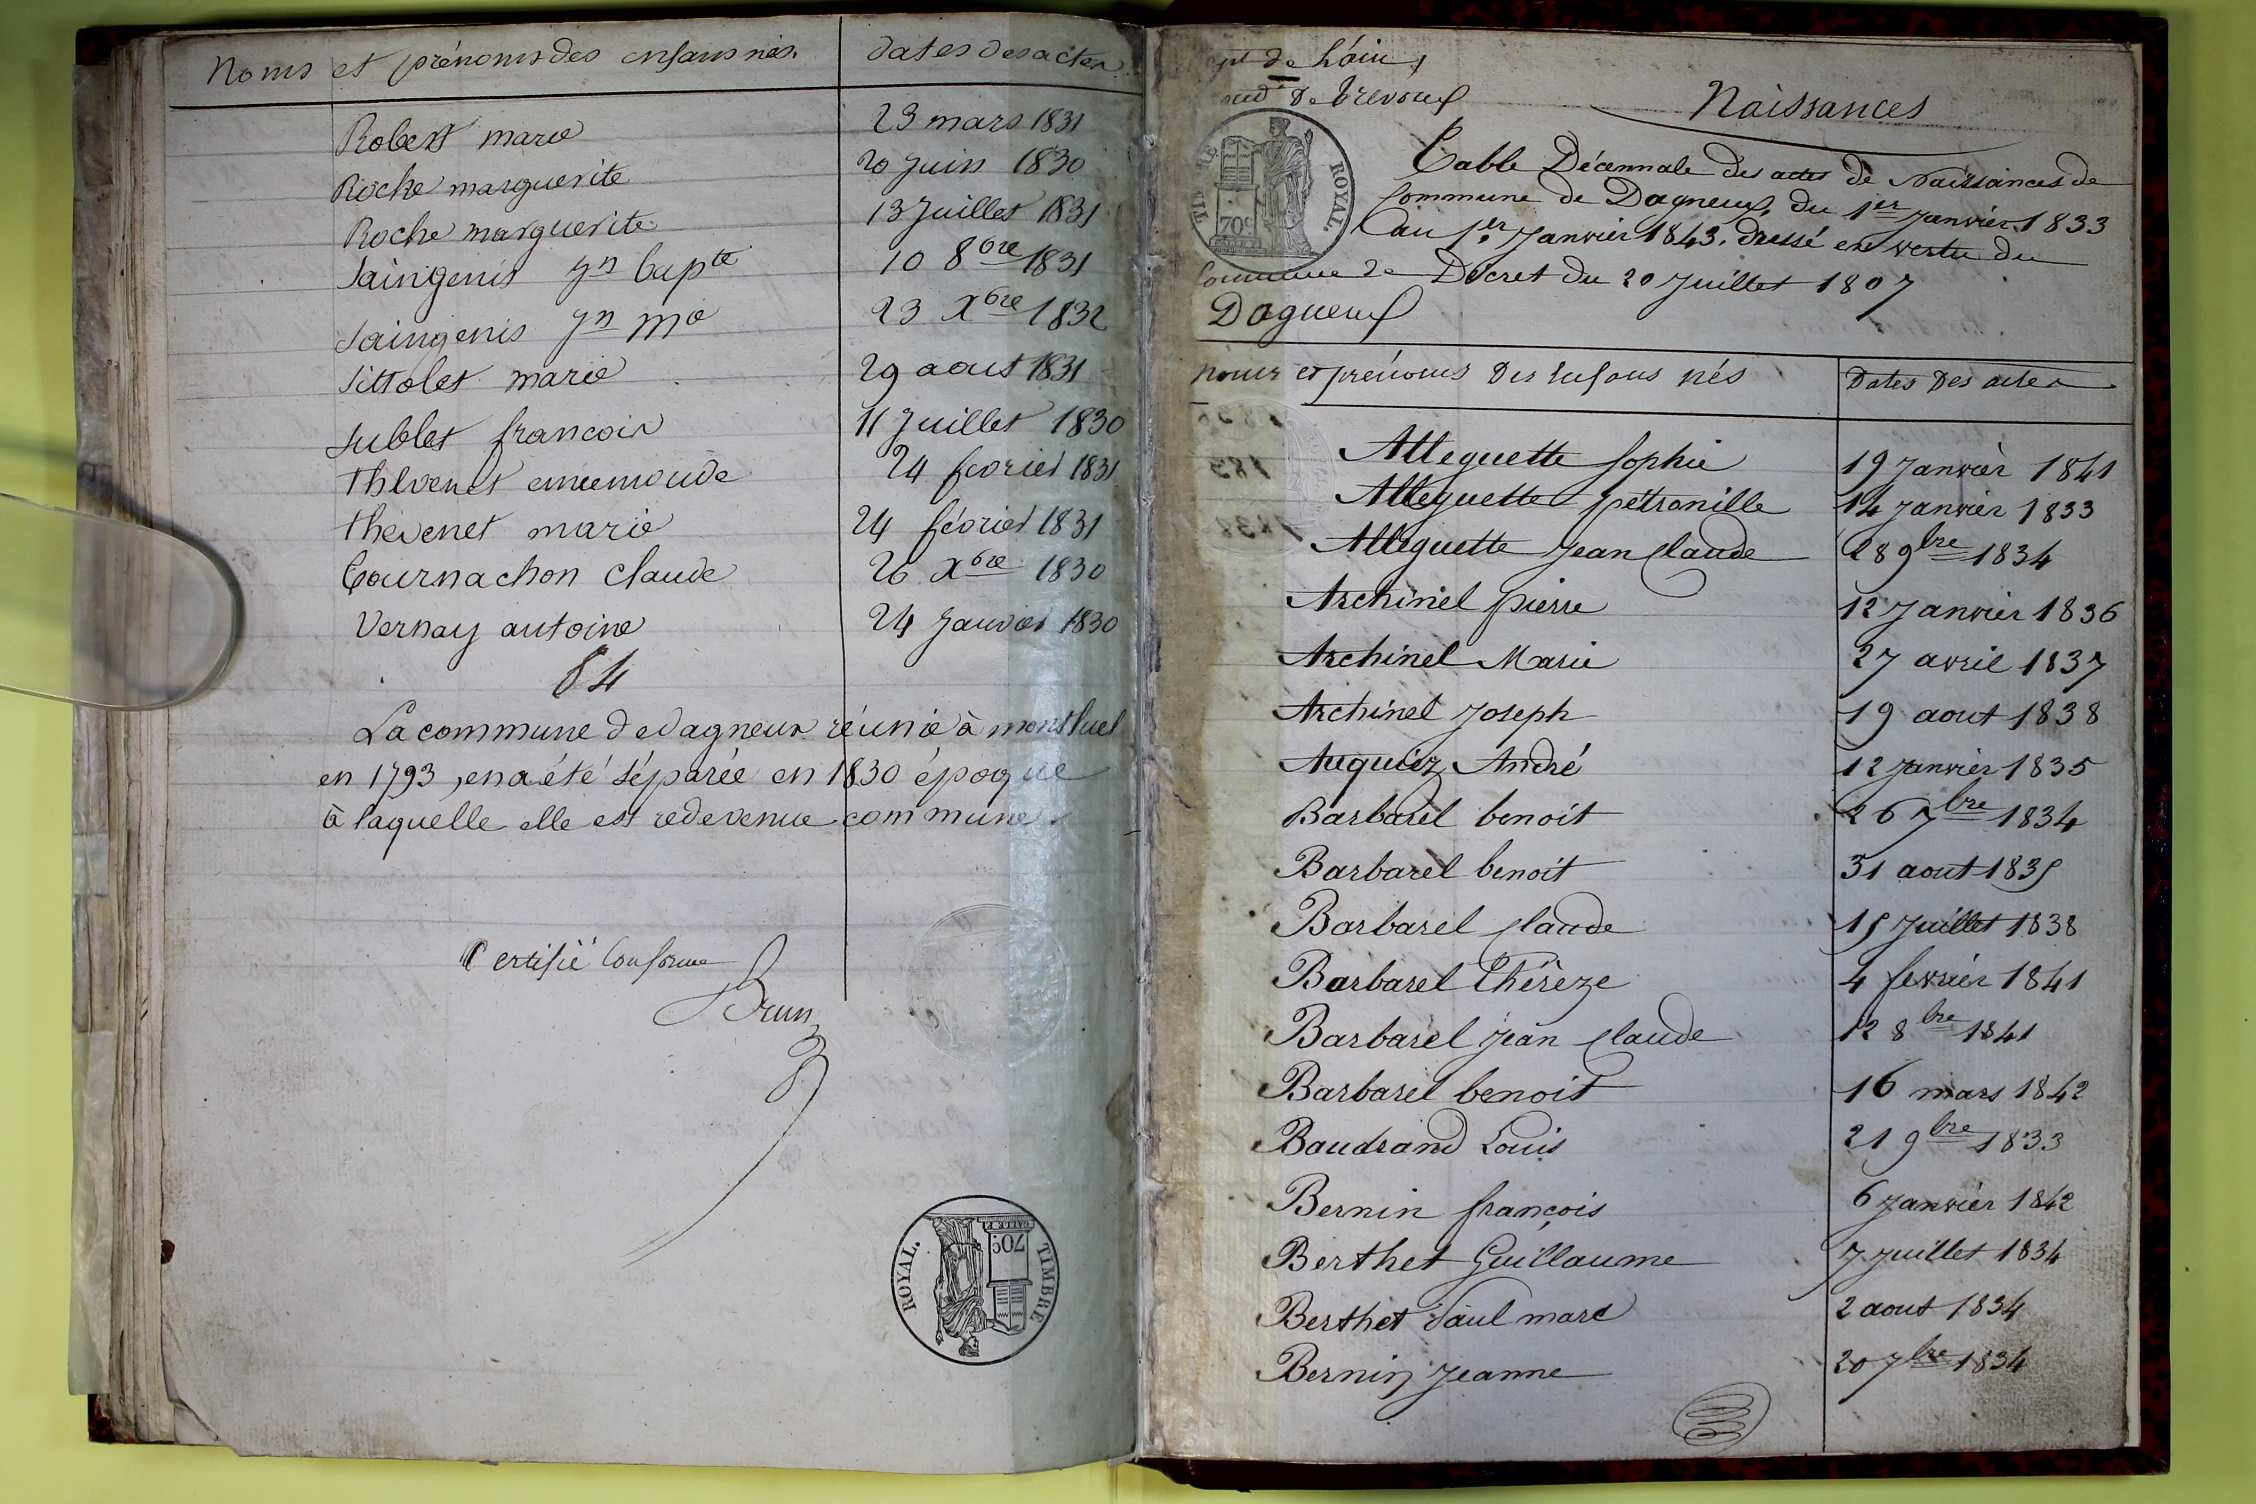 Noms et prénoms des enfans nés. dates des actes
Robert marie 23 mars 1831
Roche marguerite 20 juin 1830
Roche marguerite 13 Juillet 1831
Saingenis Jn bapte 10 8bre 1831
Saingenis Jn Me 23 Xbre 1832
Sittolet marie 29 aout 1831
Sublet francois 11 Juillet 1830
Thevenet 24 fevrier 1831
thevenet marie 24 février 1831
Tournachon Claude 26 Xbre 1830
Vernay antoine 24 Janvier 1830
84
La commune de dagneux réunie à montluel
en 1793, en a été séparée en 1830 époque
à laquelle elle est redevenue commune.
Certifié Conforme
Brun
TIMBRE ROYAL.
70c
de L'ain
de Trevoux
Naissances
TIMBRE ROYAL.
70c
Table Décennale des actes de Naissances de
Commune de Dagneux, du 1er Janvier 1833
au 1er Janvier 1843, dressé en vertu du
Décret du 20 Juillet 1807
Commune de
Dagneux
Noms et prénoms des enfans nés Dates des actes
Alleguette Sophie 19 Janvier 1841
Alleguette pétronille 14 Janvier 1833
Alleguette Jean Claude 28 9bre 1834
Archinel pierre 12 Janvier 1836
Archinel Marie 27 avril 1837
Archinel Joseph 19 aout 1838
Auquiez André 12 Janvier 1835
Barbarel benoit 26 7bre 1834
Barbarel benoit 31 aout 1835
Barbarel Claude 15 Juillet 1838
Barbarel Thérèze 4 fevrier 1841
Barbarel Jean Claude 12 8bre 1841
Barbarel benoit 16 mars 1842
Baudrand Louis 21 9bre 1833
Bernin françois 6 Janvier 1842
Berthet Guillaume 7 Juillet 1834
Berthet paul marc 2 aout 1834
Bernin Jeanne 20 7bre 1834